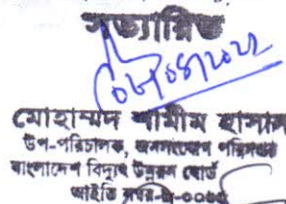 সত্যায়িত
মোহাম্মদ শামীম হাসান
উপ-পরিচালক, জনসংযোগ পরিদপ্তর
বাংলাদেশ বিদ্যুৎ উন্নয়ন বোর্ড
আইডি নম্বর-